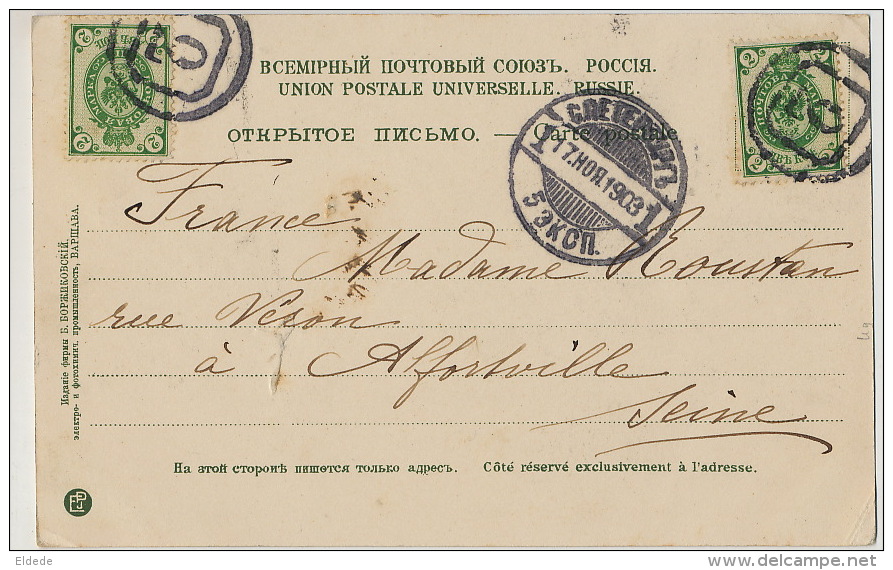 ВСЕМІРНЫЙ ПОЧТОВЫЙ СОЮЗЪ. РОССІЯ.
UNION POSTALE UNIVERSELLE. RUSSIE.
ОТКРЫТОЕ ПИСЬМО. — Carte postale
С ПЕТЕРБУРГЪ
1 17.НОЯ.1903 1
5 ЭКСП.
France
Madame Roustan
rue Véron
à Alfortville
Seine
На этой сторонѣ пишется только адресъ. Côté réservé exclusivement à l'adresse.
Изданіе фирмы Б. БОРЖИКОВСКІЙ.
электро- и фотохимич. промышленность, ВАРШАВА.
2
2
МАРКА
2
2
Eldede
delcampe.net